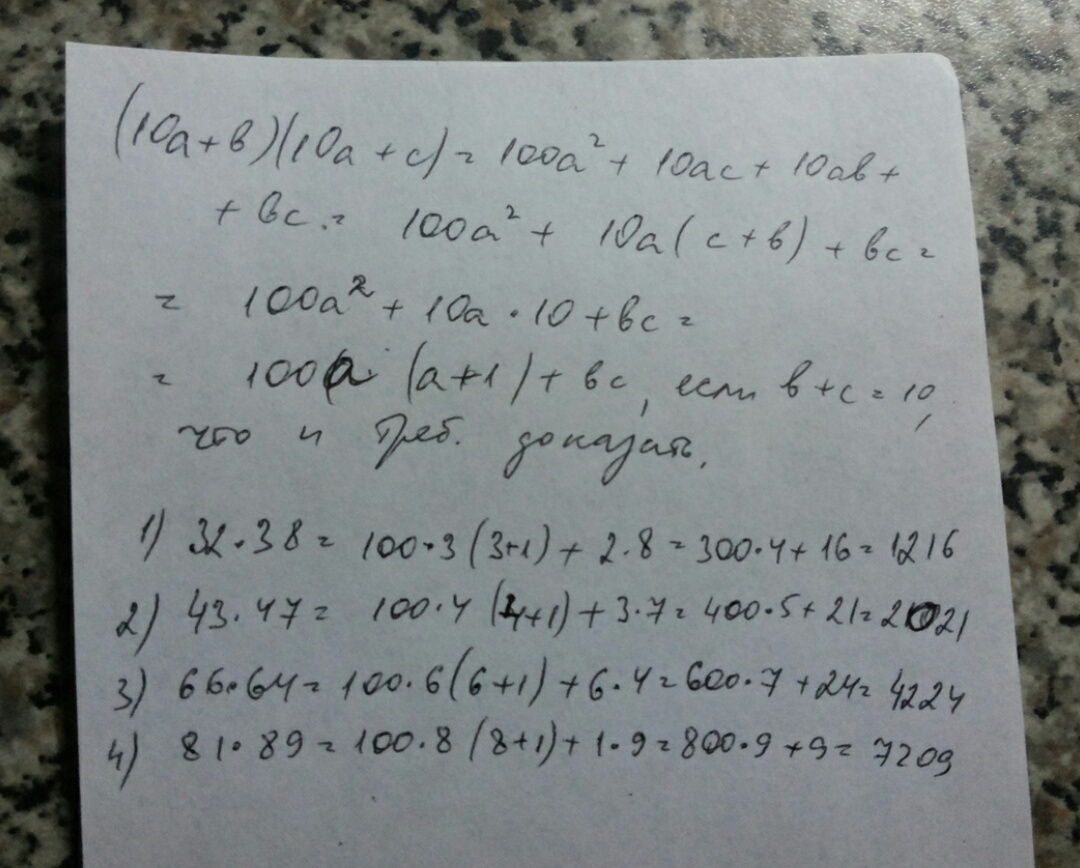 (10а+в)(10а+с)=100а²+10ас+10ав+
+вс.=100а²+10а(с+в)+вс=
=100а²+10а·10+вс=
=100а·(а+1)+вс, если в+с=10,
что и треб. доказать.
1) 32·38=100·3(3+1)+2·8=300·4+16=1216
2) 43·47=100·4(4+1)+3·7=400·5+21=2021
3) 66·64=100·6(6+1)+6·4=600·7+24=4224
4) 81·89=100·8(8+1)+1·9=800·9+9=7209